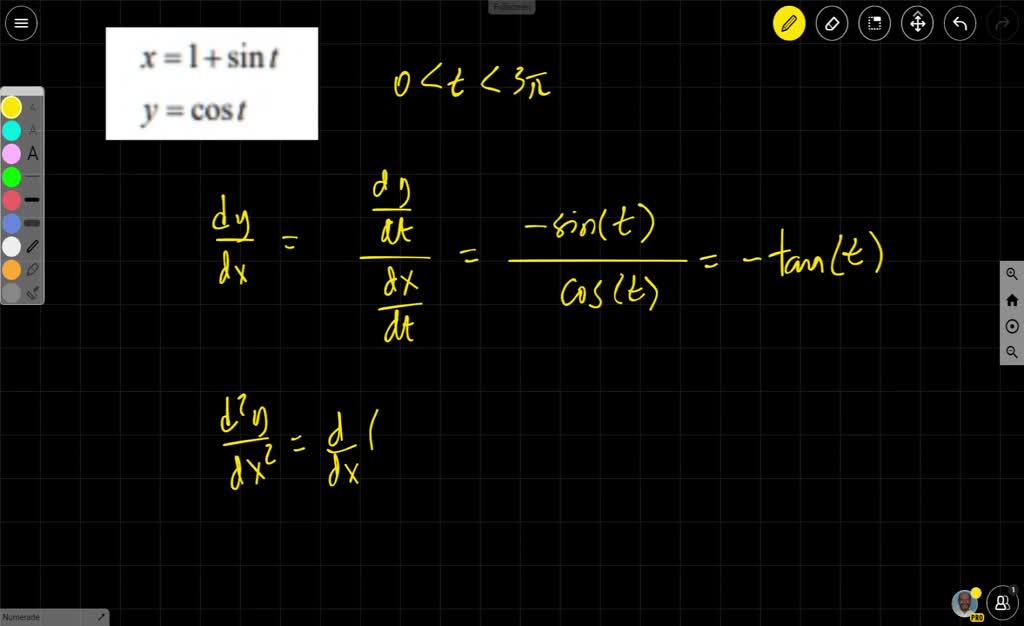 Fullscreen
x = 1 + sin t
y = cos t
0 < t < 3π
A
A
A
dy/dx = (dy/dt)/(dx/dt) = -sin(t)/cos(t) = -tan(t)
d²y/dx² = d/dx (
Numerade
PRO
1